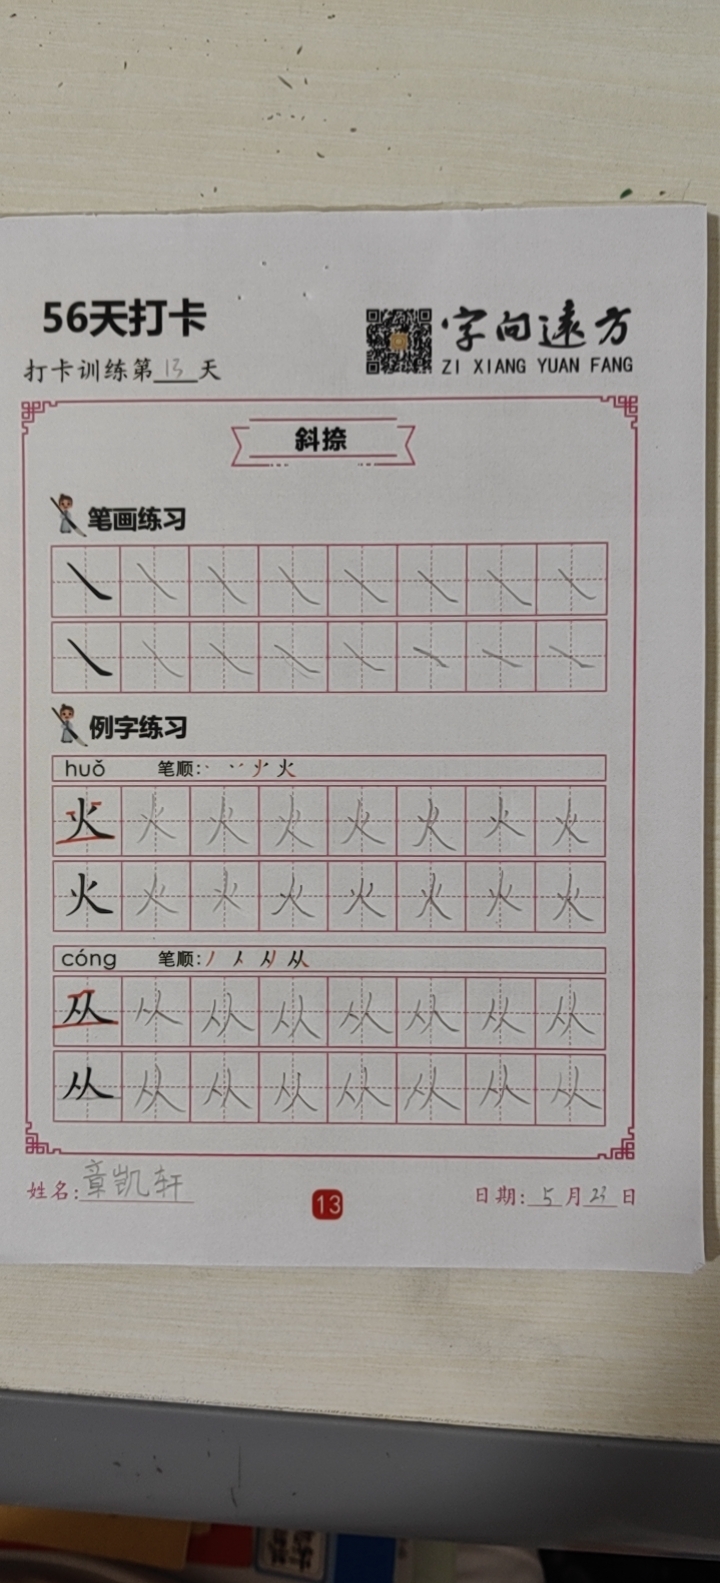 56天打卡
字向远方
打卡训练第13天
ZI XIANG YUAN FANG
斜捺
笔画练习
㇏ ㇏ ㇏ ㇏ ㇏ ㇏ ㇏ ㇏
㇏ ㇏ ㇏ ㇏ ㇏ ㇏ ㇏ ㇏
例字练习
huǒ 笔顺: 火
火 火 火 火 火 火 火 火
火 火 火 火 火 火 火 火
cóng 笔顺: 丿 人 从
从 从 从 从 从 从 从 从
从 从 从 从 从 从 从 从
姓名:章凯轩
13
日期:5月23日